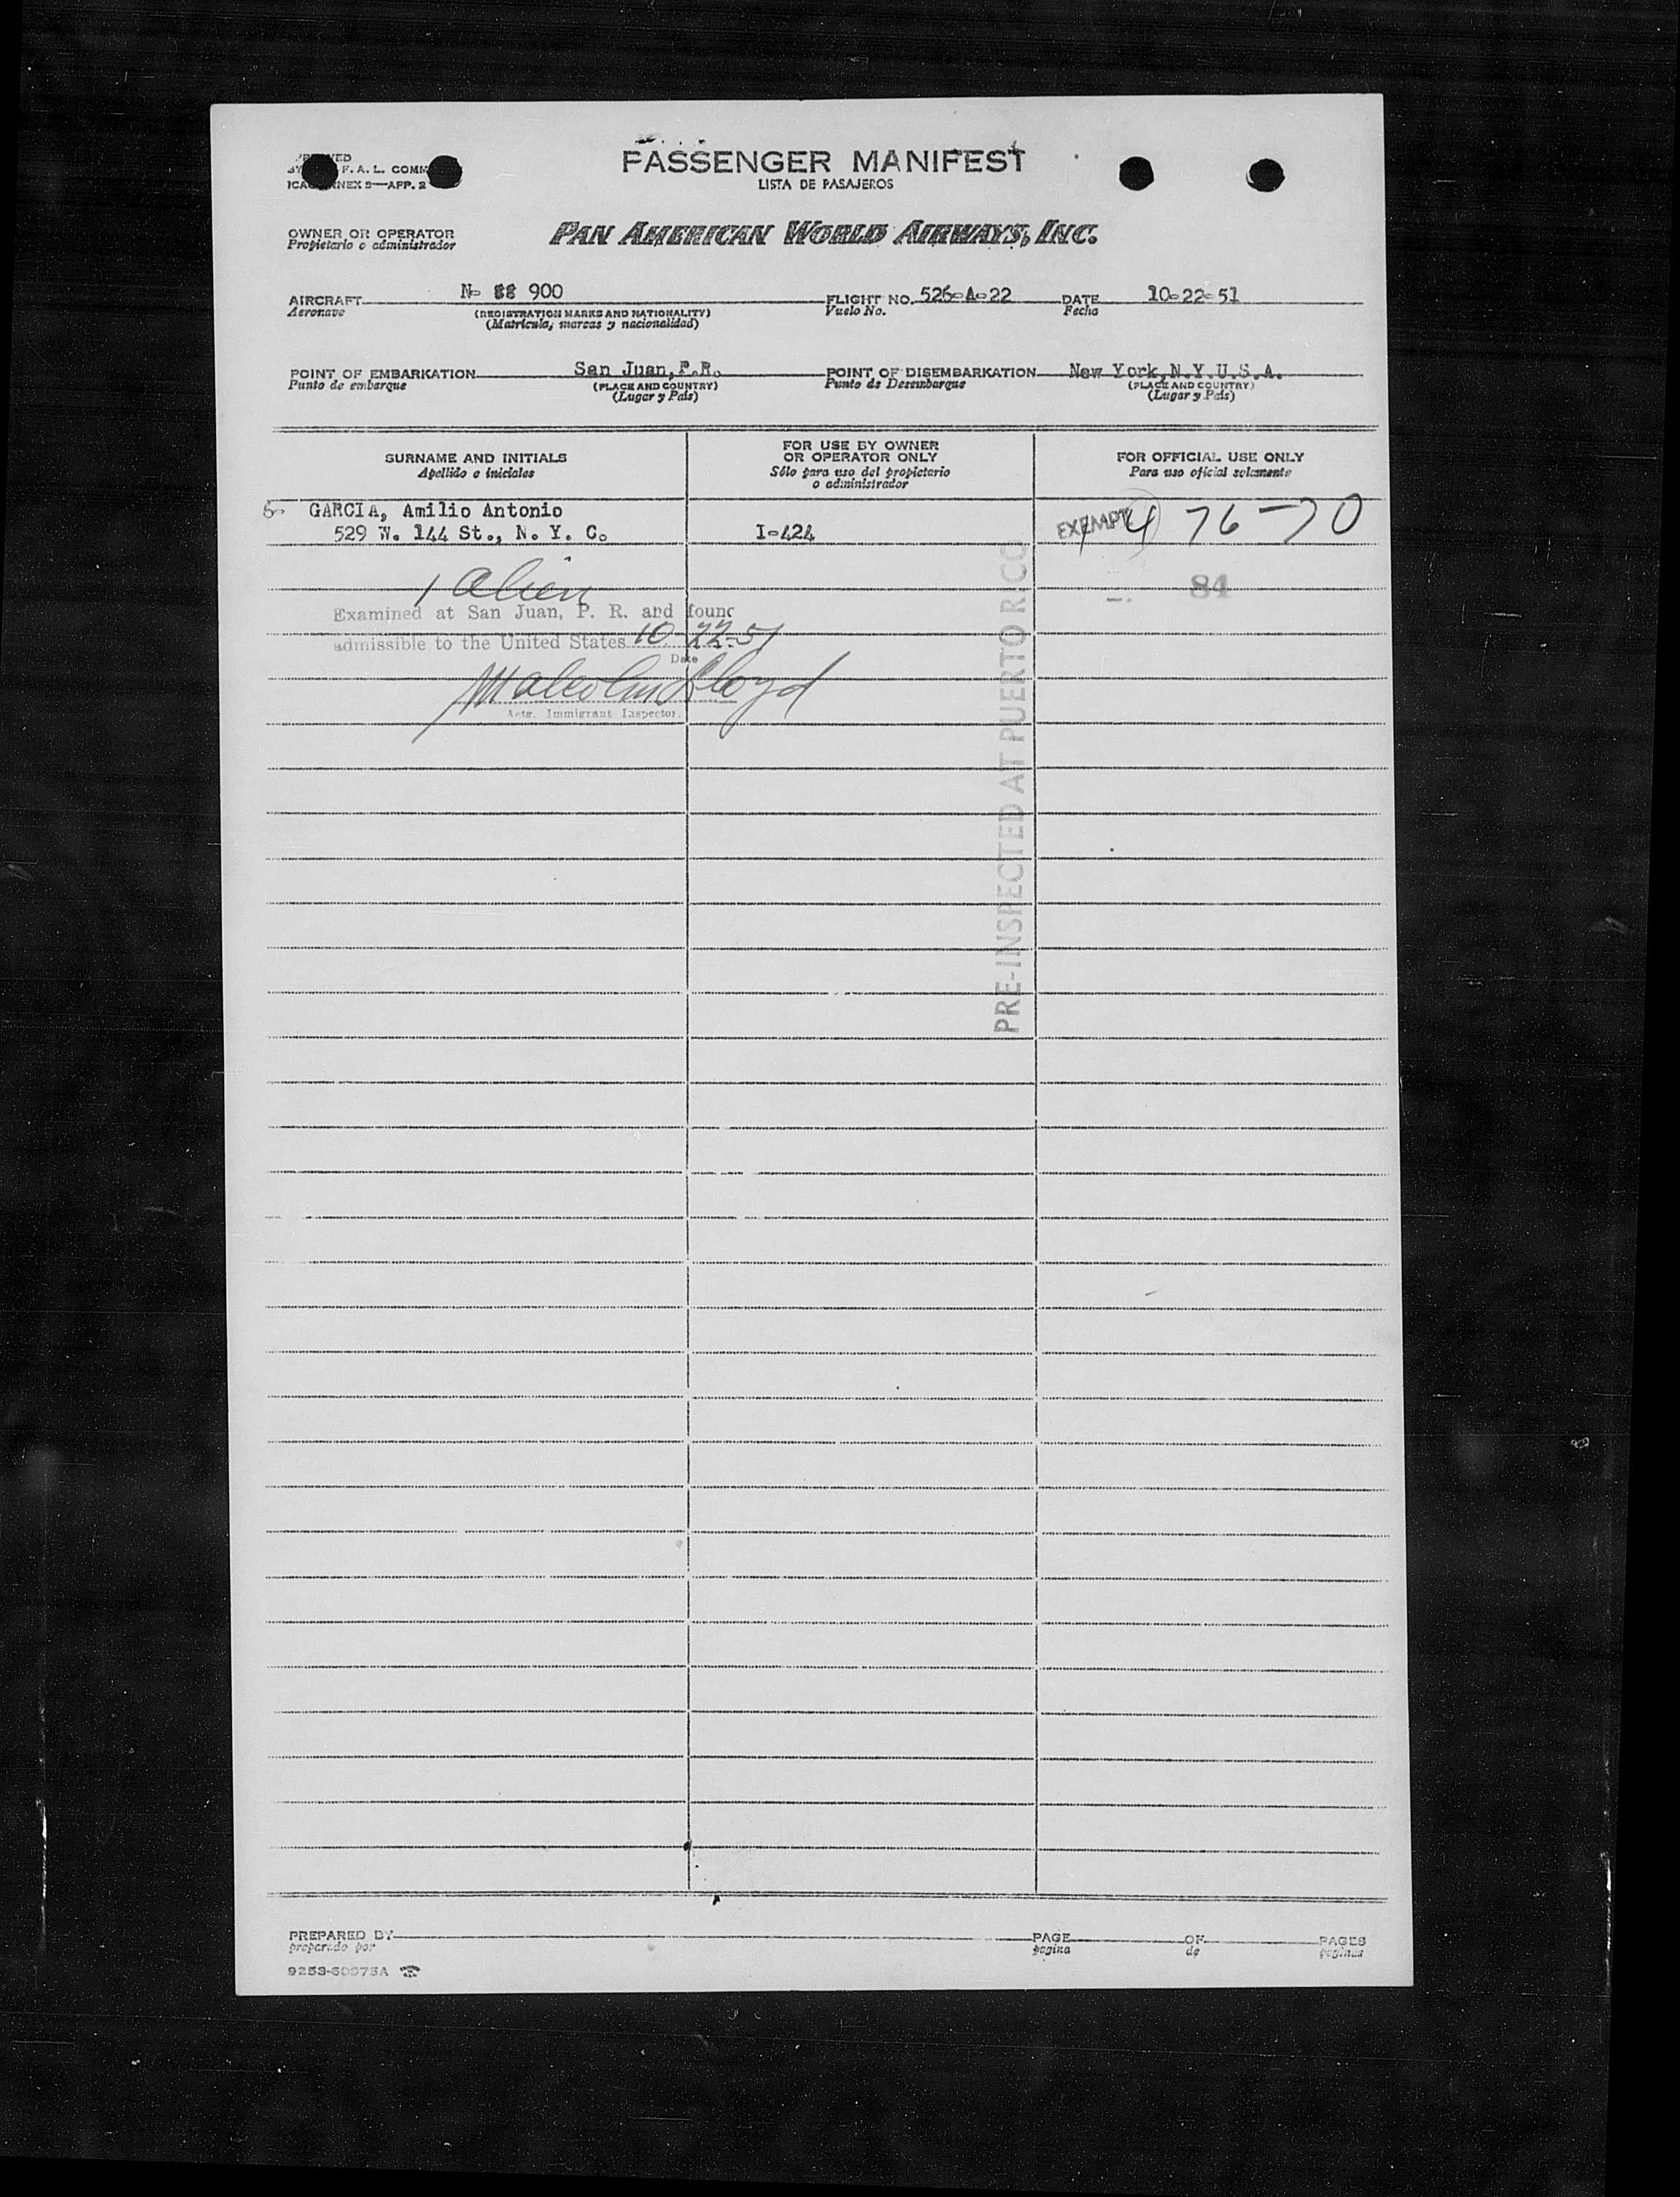 PASSENGER MANIFEST
LISTA DE PASAJEROS
F. A. L. COMM
APP. 2
OWNER OR OPERATOR
Propietario o administrador
PAN AMERICAN WORLD AIRWAYS, INC.
AIRCRAFT N- 88 900 FLIGHT NO. 526-A-22 DATE 10-22-51
Aeronave (REGISTRATION MARKS AND NATIONALITY) Vuelo No. Fecha
(Matrícula, marcas y nacionalidad)
POINT OF EMBARKATION San Juan, P.R. POINT OF DISEMBARKATION New York, N.Y.U.S.A.
Punto de embarque (PLACE AND COUNTRY) Punto de Desembarque (PLACE AND COUNTRY)
(Lugar y País) (Lugar y País)
SURNAME AND INITIALS
Apellido e iniciales
FOR USE BY OWNER
OR OPERATOR ONLY
Sólo para uso del propietario
o administrador
FOR OFFICIAL USE ONLY
Para uso oficial solamente
GARCIA, Amilio Antonio
529 W. 144 St., N. Y. C. I-424 EXEMPT 4 76-70
1 Alien 84
Examined at San Juan, P. R. and found
admissible to the United States 10-22-51
Date
Malcolm Lloyd
Actg. Immigrant Inspector.
PRE-INSPECTED AT PUERTO RICO
PREPARED BY PAGE OF PAGES
preparado por pagina de paginas